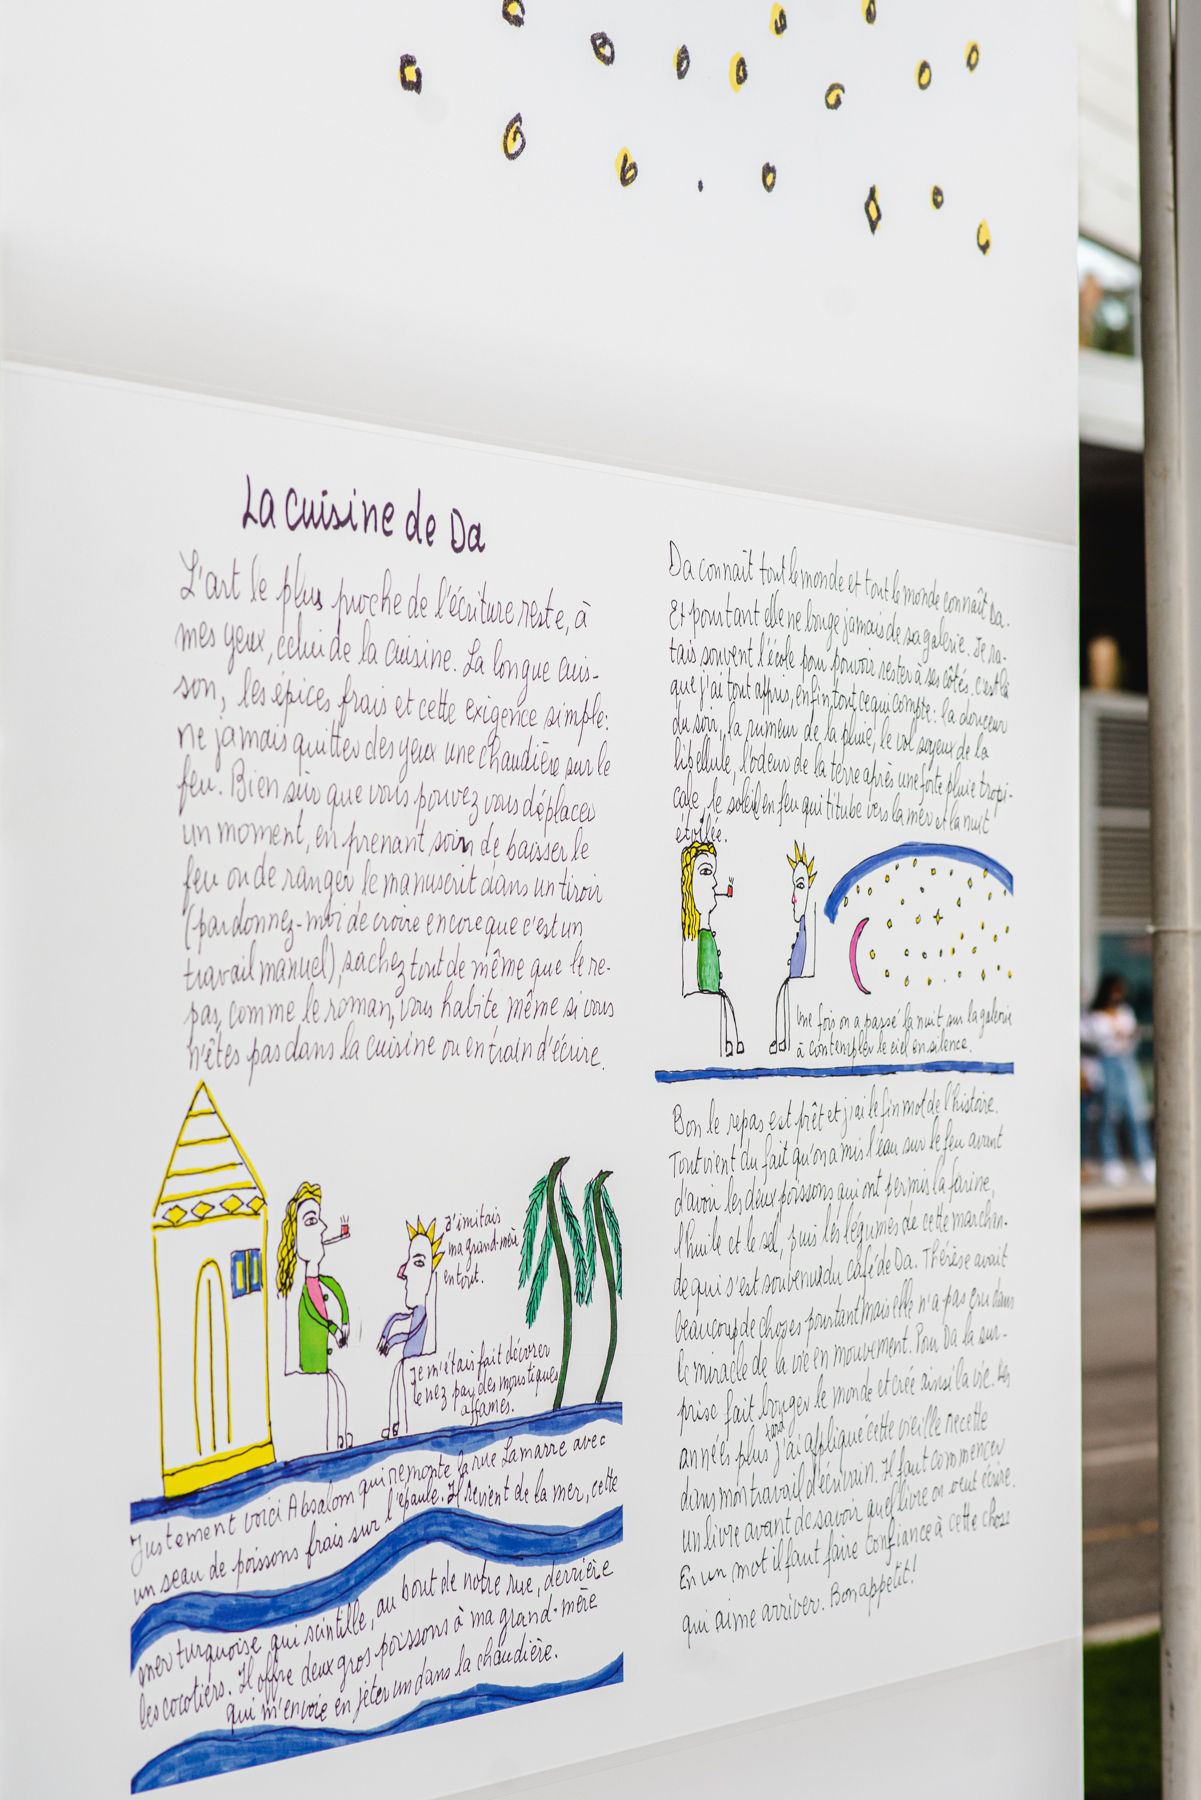 La cuisine de Da
L'art le plus proche de l'écriture reste, à
mes yeux, celui de la cuisine. La longue cuis-
son, les épices frais et cette exigence simple:
ne jamais quitter des yeux une chaudière sur le
feu. Bien sûr que vous pouvez vous déplacer
un moment, en prenant soin de baisser le
feu ou de ranger le manuscrit dans un tiroir
(pardonnez-moi de croire encore que c'est un
travail manuel), sachez tout de même que le re-
pas, comme le roman, vous habite même si vous
n'êtes pas dans la cuisine ou en train d'écrire.
J'imitais
ma grand-mère
en tout.
Je m'étais fait dévorer
le nez par des moustiques
affamés.
Justement voici Absalom qui remonte la rue Lamarre avec
un seau de poissons frais sur l'épaule. Il revient de la mer, cette
mer turquoise, qui scintille, au bout de notre rue, derrière
les cocotiers. Il offre deux gros poissons à ma grand-mère
qui m'envoie en jeter un dans la chaudière.
Da connaît tout le monde et tout le monde connaît Da.
Et pourtant elle ne bouge jamais de sa galerie. Je ra-
tais souvent l'école pour pouvoir rester à ses côtés. C'est là
que j'ai tout appris, enfin tout ce qui compte: la douceur
du soir, la rumeur de la pluie, le vol soyeux de la
libellule, l'odeur de la terre après une forte pluie tropi-
cale, le soleil en feu qui titube vers la mer et la nuit
étoilée.
Une fois on a passé la nuit sur la galerie
à contempler le ciel en silence.
Bon le repas est prêt et j'ai le fin mot de l'histoire.
Tout vient du fait qu'on a mis l'eau sur le feu avant
d'avoir les deux poissons qui ont permis la farine,
l'huile et le sel, puis les légumes de cette marchan-
de qui s'est souvenu du café de Da. Thérèse avait
beaucoup de choses pourtant mais elle n'a pas cru dans
le miracle de la vie en mouvement. Pour Da la sur-
prise fait bouger le monde et crée ainsi la vie. Des
années plus tard j'ai appliqué cette vieille recette
dans mon travail d'écrivain. Il faut commencer
un livre avant de savoir quel livre on veut écrire.
En un mot il faut faire confiance à cette chose
qui aime arriver. Bon appétit!